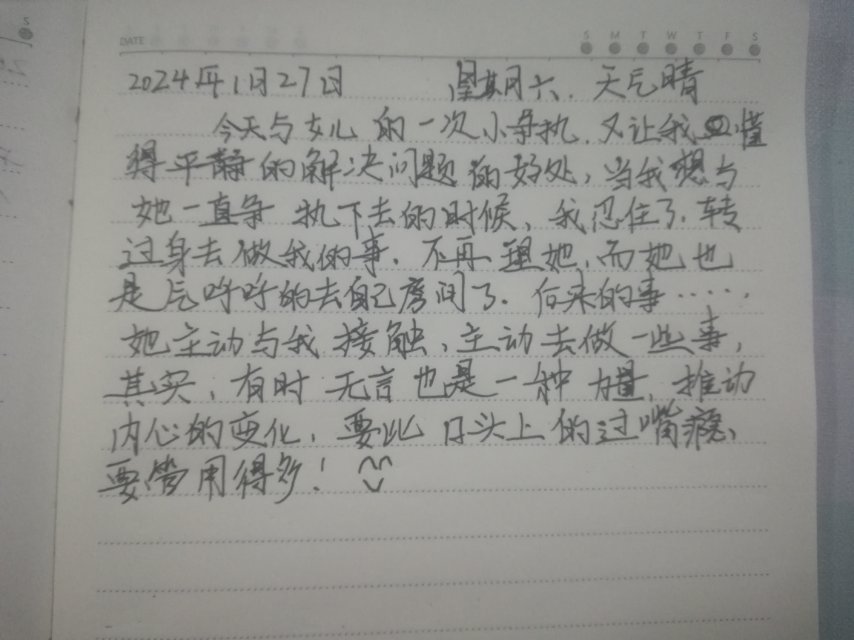 DATE
S M T W T F S
2024年1月27日 星期六. 天气晴
今天与女儿的一次小争执, 又让我懂
得平静的解决问题的好处, 当我想与
她一直争执下去的时候, 我忍住了. 转
过身去做我的事. 不再理她, 而她也
是气呼呼的去自己房间了. 后来的事……
她主动与我接触, 主动去做一些事,
其实, 有时无言也是一种力量, 推动
内心的变化, 要比口头上的过嘴瘾,
要管用得多!